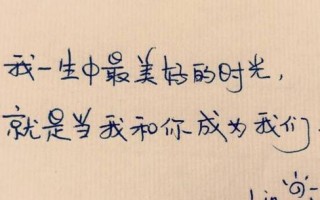 我一生中最美好的时光，
就是当我和你成为我们